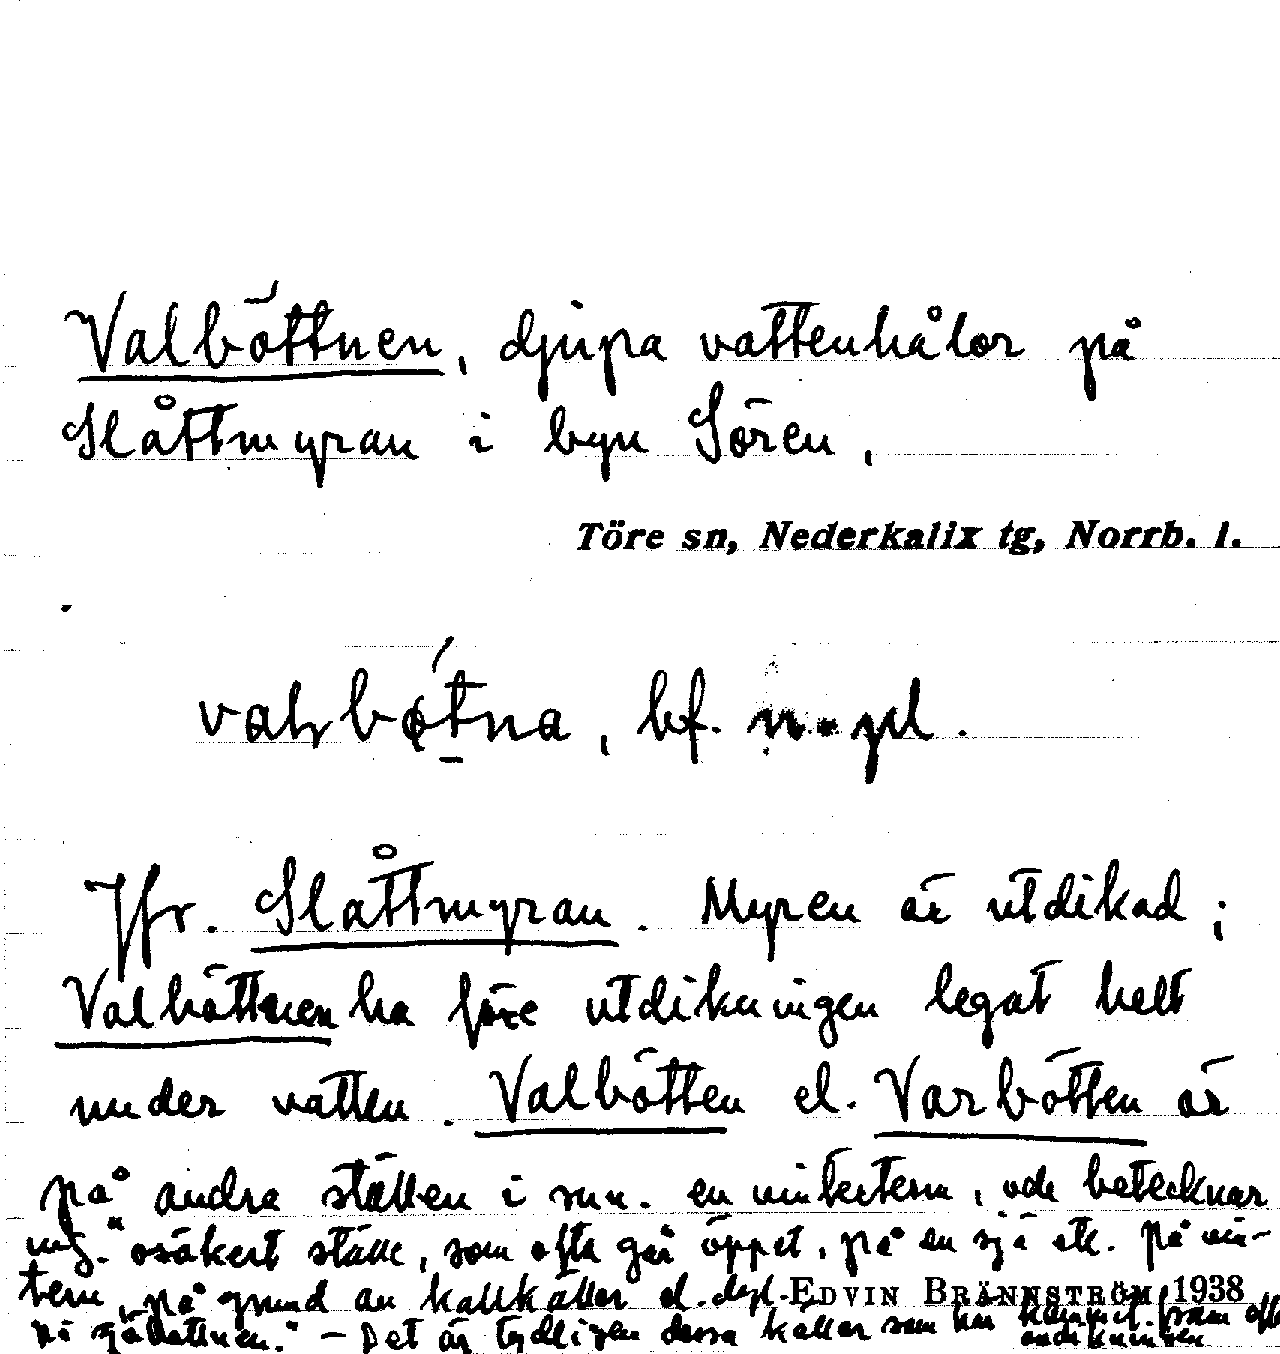 Valböttnen, djupa vattenhålor på
Slåttmyran i byn Sören,
Töre sn, Nederkalix tg, Norrb. l.
bf. n. pl.
Jfr. Slåttmyran. Myren är utdikad;
Valböttnen ha före utdikningen legat helt
under vatten. Valbötten el. Varbötten är
på andra ställen i snn. en vinterterm, och betecknar
"osäkert ställe, som ofta går öppet, på en sjö etc. på vin-
tern, på grund av kallkällor el. dyl.
EDVIN BRÄNNSTRÖM 1938
på sjöbottnen." – Det är tydligen dessa källor som har